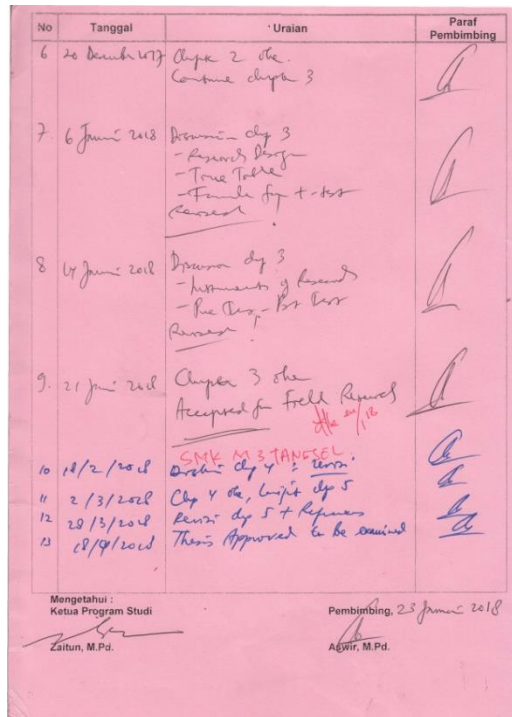 No Tanggal Uraian Paraf Pembimbing
6 20 Desember 2017 Chapter 2 oke.
Continue chapter 3
7. 6 Januari 2018 Discussion chp 3
- Research Design
- Time Table
- Formula for t-test
Research!
8 14 Januari 2018 Discussion chp 3
- Instruments of Research
- Pre Test, Post Test
Research!
9. 21 Januari 2018 Chapter 3 oke
Accepted for Field Research
SMK M3 TANGSEL
10 18/2/2018 chp 4 : revisi.
11 2/3/2018 Chp 4 oke, lanjut chp 5
12 28/3/2018 Revisi chp 5 + References
13 18/4/2018 Thesis Approved to be examined
Mengetahui :
Ketua Program Studi
Pembimbing, 23 Januari 2018
Zaitun, M.Pd.
Aswir, M.Pd.